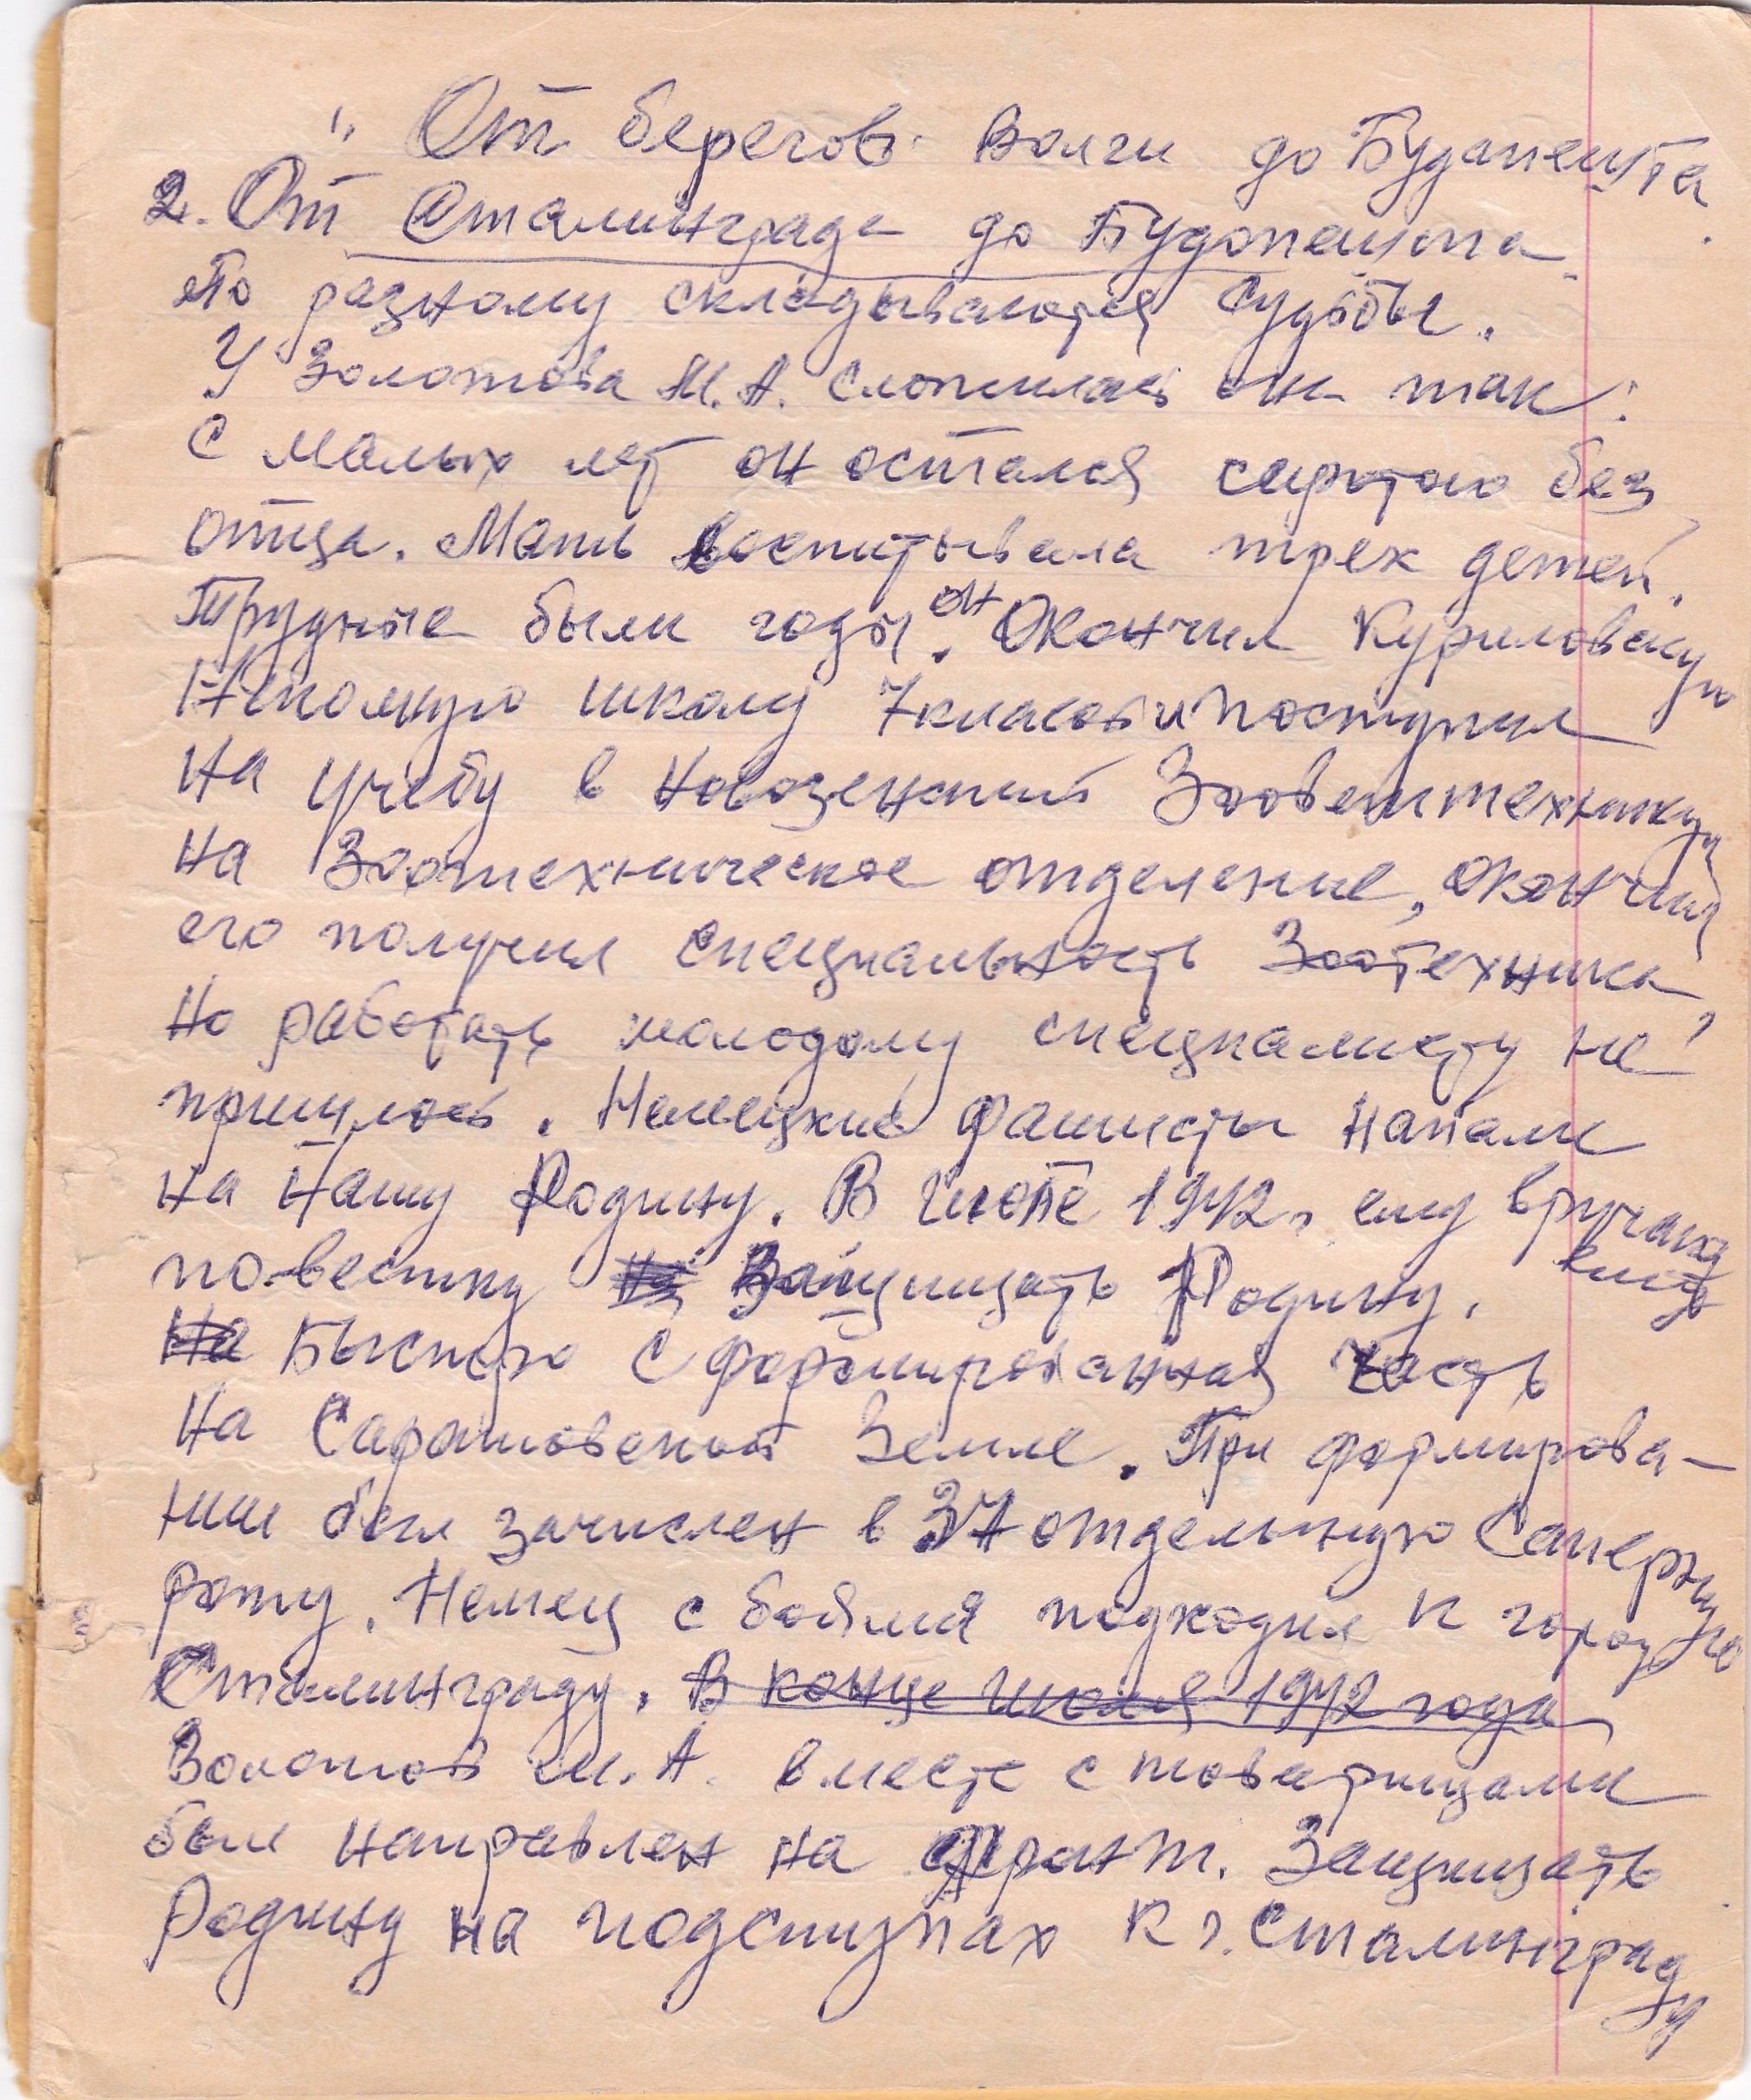 " От берегов Волги до Будапешта.
2. От Сталинграда до Будопешта.
По разному складываются судьбы.
У Золотова М.А. сложилась он так:
С малых лет он остался сиротою без
отца. Мать воспитывала трех детей.
Трудные были годы. он Окончил Куриловскую
Неполную школу 7 класов и поступил
на учебу в Новоузенский Зооветтехникум
на Зоотехническое отделение, окончив
его получил специальность Зоотехника,
Но работать молодому специалисту не
пришлось. Немецкие фашисты напали
на нашу Родину. В июле 1942г. ему вручают
повестку Защищать Родину.
На Быстро сформированная часть
на Саратовской Земле. При формирова-
нии был зачислен в 37 отдельную Саперную
роту. Немец с боями подходил к городу
Сталинграду. В конце июля 1942 года
Золотов М.А. вместе с товарищами
был направлен на фронт. Защищать
Родину на подступах к г. Сталинграду